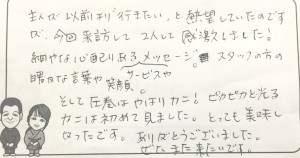 主人が以前より"行きたい"と熱望していたのです
が、今回来訪して2人して感激しました!
細やかな心配りあるメッセージ。スタッフの方の
暖かな言葉や笑顔。サービスや
そして圧巻はやはりカニ!ピカピカと光る
カニは初めて見ました。とっても美味し
かったです。ありがとうございました。
ぜひまた来たいです。